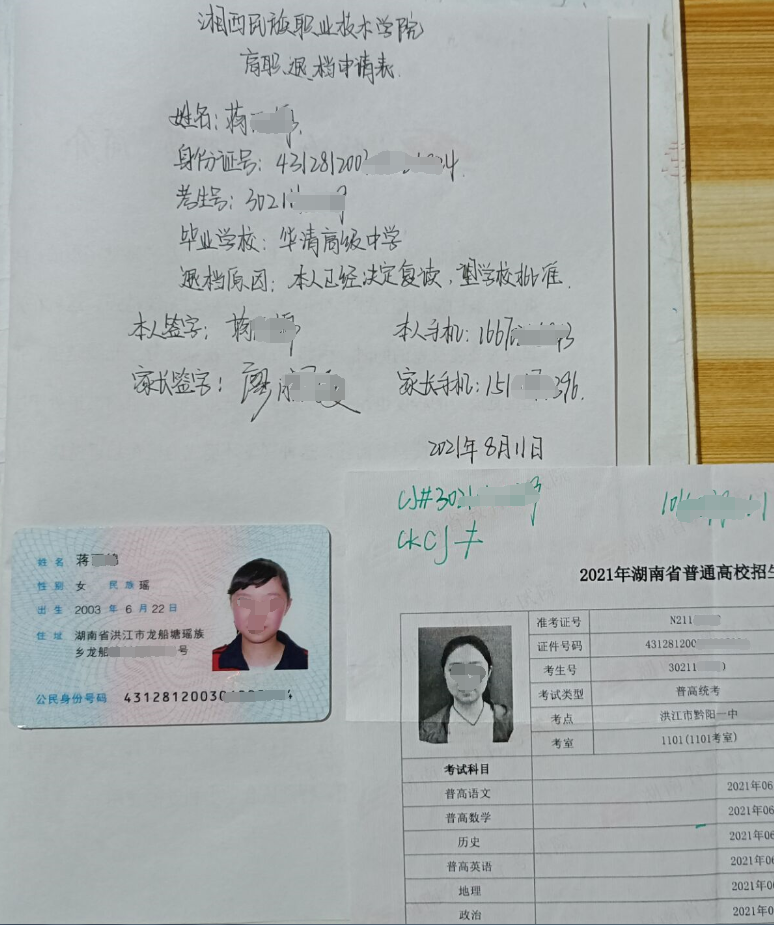 湘西民族职业技术学院
高职退档申请表
姓名：蒋
身份证号：431281200 4
考生号：3021
毕业学校：华清高级中学
退档原因：本人已经决定复读，望学校批准.
本人签字：蒋
本人手机：1667 3
家长签字：廖
家长手机：151 396.
2021年8月11日
CJ#3021
CKCJ
姓名 蒋
性别 女 民族 瑶
出生 2003 年 6 月 22 日
住址 湖南省洪江市龙船塘瑶族
乡龙船 号
公民身份号码 43128120030 4
2021年湖南省普通高校招生
准考证号 N211
证件号码 431281200
考生号 30211
考试类型 普高统考
考点 洪江市黔阳一中
考室 1101(1101考室)
考试科目
普高语文 2021年06
普高数学 2021年06
历史 2021年06
普高英语 2021年06
地理 2021年06
政治 2021年0